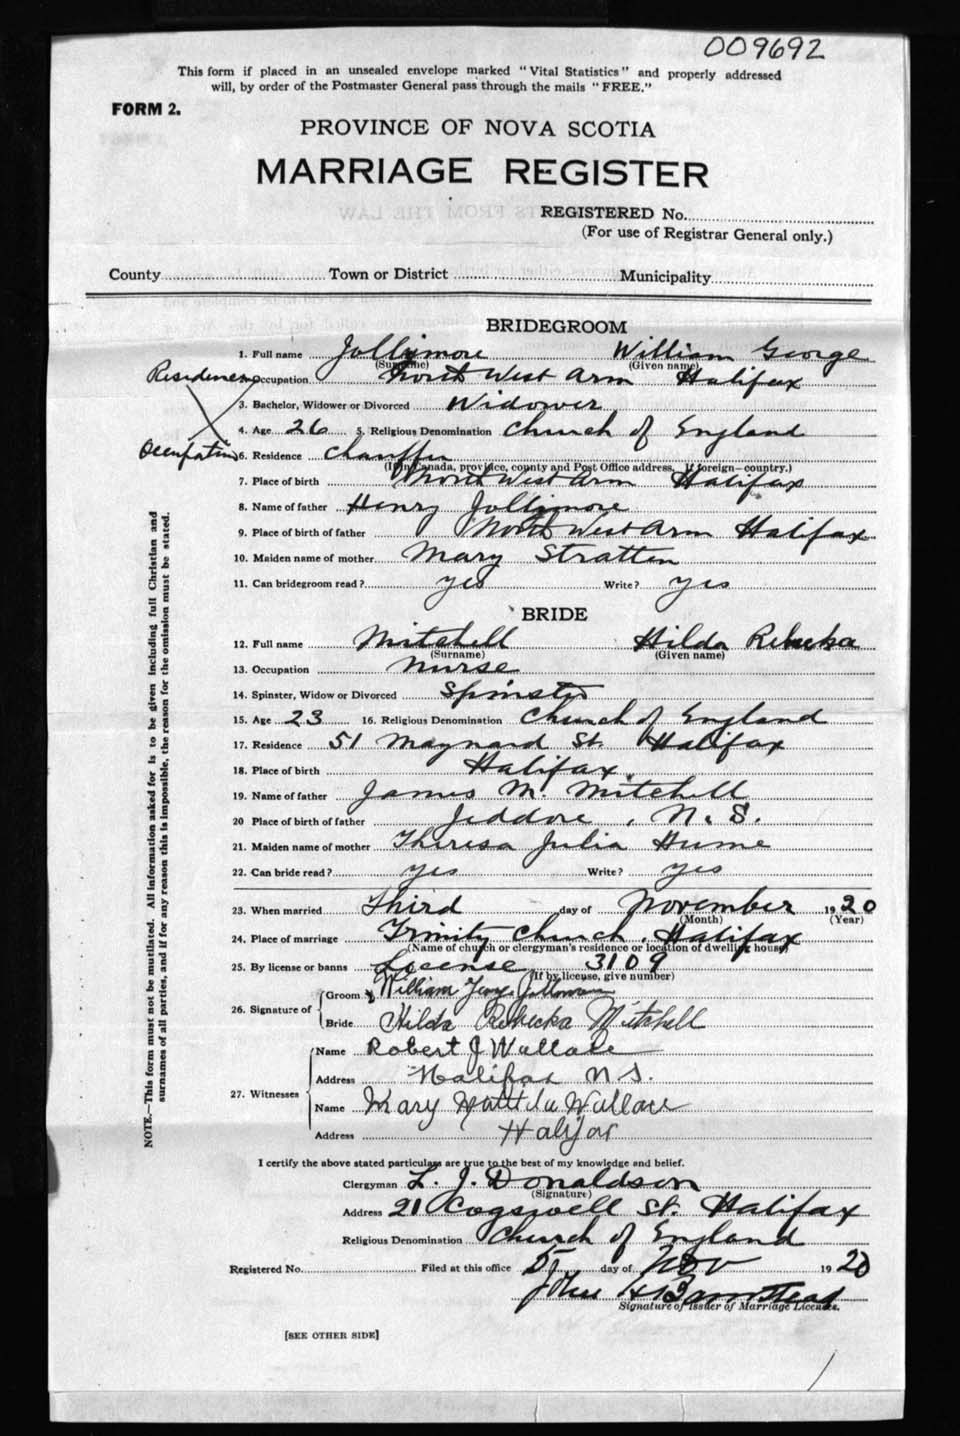 009692
This form if placed in an unsealed envelope marked "Vital Statistics" and properly addressed
will, by order of the Postmaster General pass through the mails "FREE."
FORM 2.
PROVINCE OF NOVA SCOTIA
MARRIAGE REGISTER
REGISTERED No.
(For use of Registrar General only.)
County Town or District Municipality
BRIDEGROOM
1. Full name Jollymore William George
(Surname) (Given name)
Residence Occupation North West Arm Halifax
3. Bachelor, Widower or Divorced Widower
4. Age 26 5. Religious Denomination Church of England
Occupation 6. Residence Chauffer
(If in Canada, province, county and Post Office address. If foreign—country.)
7. Place of birth North West Arm Halifax
8. Name of father Henry Jollymore
9. Place of birth of father North West Arm Halifax
10. Maiden name of mother Mary Stratten
11. Can bridegroom read? yes Write? yes
BRIDE
12. Full name Mitchell Hilda Rebecka
(Surname) (Given name)
13. Occupation Nurse
14. Spinster, Widow or Divorced Spinster
15. Age 23 16. Religious Denomination Church of England
17. Residence 51 Maynard St. Halifax
18. Place of birth Halifax.
19. Name of father James M. Mitchell
20 Place of birth of father Jeddore, N. S.
21. Maiden name of mother Theresa Julia Hume
22. Can bride read? yes Write? yes
23. When married Third day of November 1920
(Month) (Year)
24. Place of marriage Trinity Church, Halifax
(Name of church or clergyman's residence or location of dwelling house)
25. By license or banns License 3109
(If by license, give number)
26. Signature of Groom William George Jollymore
Bride Hilda Rebecka Mitchell
27. Witnesses Name Robert J Wallace
Address Halifax N.S.
Name Mary Matilda Wallace
Address Halifax
I certify the above stated particulars are true to the best of my knowledge and belief.
Clergyman L. J. Donaldson
(Signature)
Address 21 Cogswell St. Halifax
Religious Denomination Church of England
Registered No. Filed at this office 5 day of Nov 1920
John H Barnstead
Signature of Issuer of Marriage Licenses.
[SEE OTHER SIDE]
NOTE.—This form must not be mutilated. All information asked for is to be given including full Christian and
surnames of all parties, and if for any reason this is impossible, the reason for the omission must be stated.